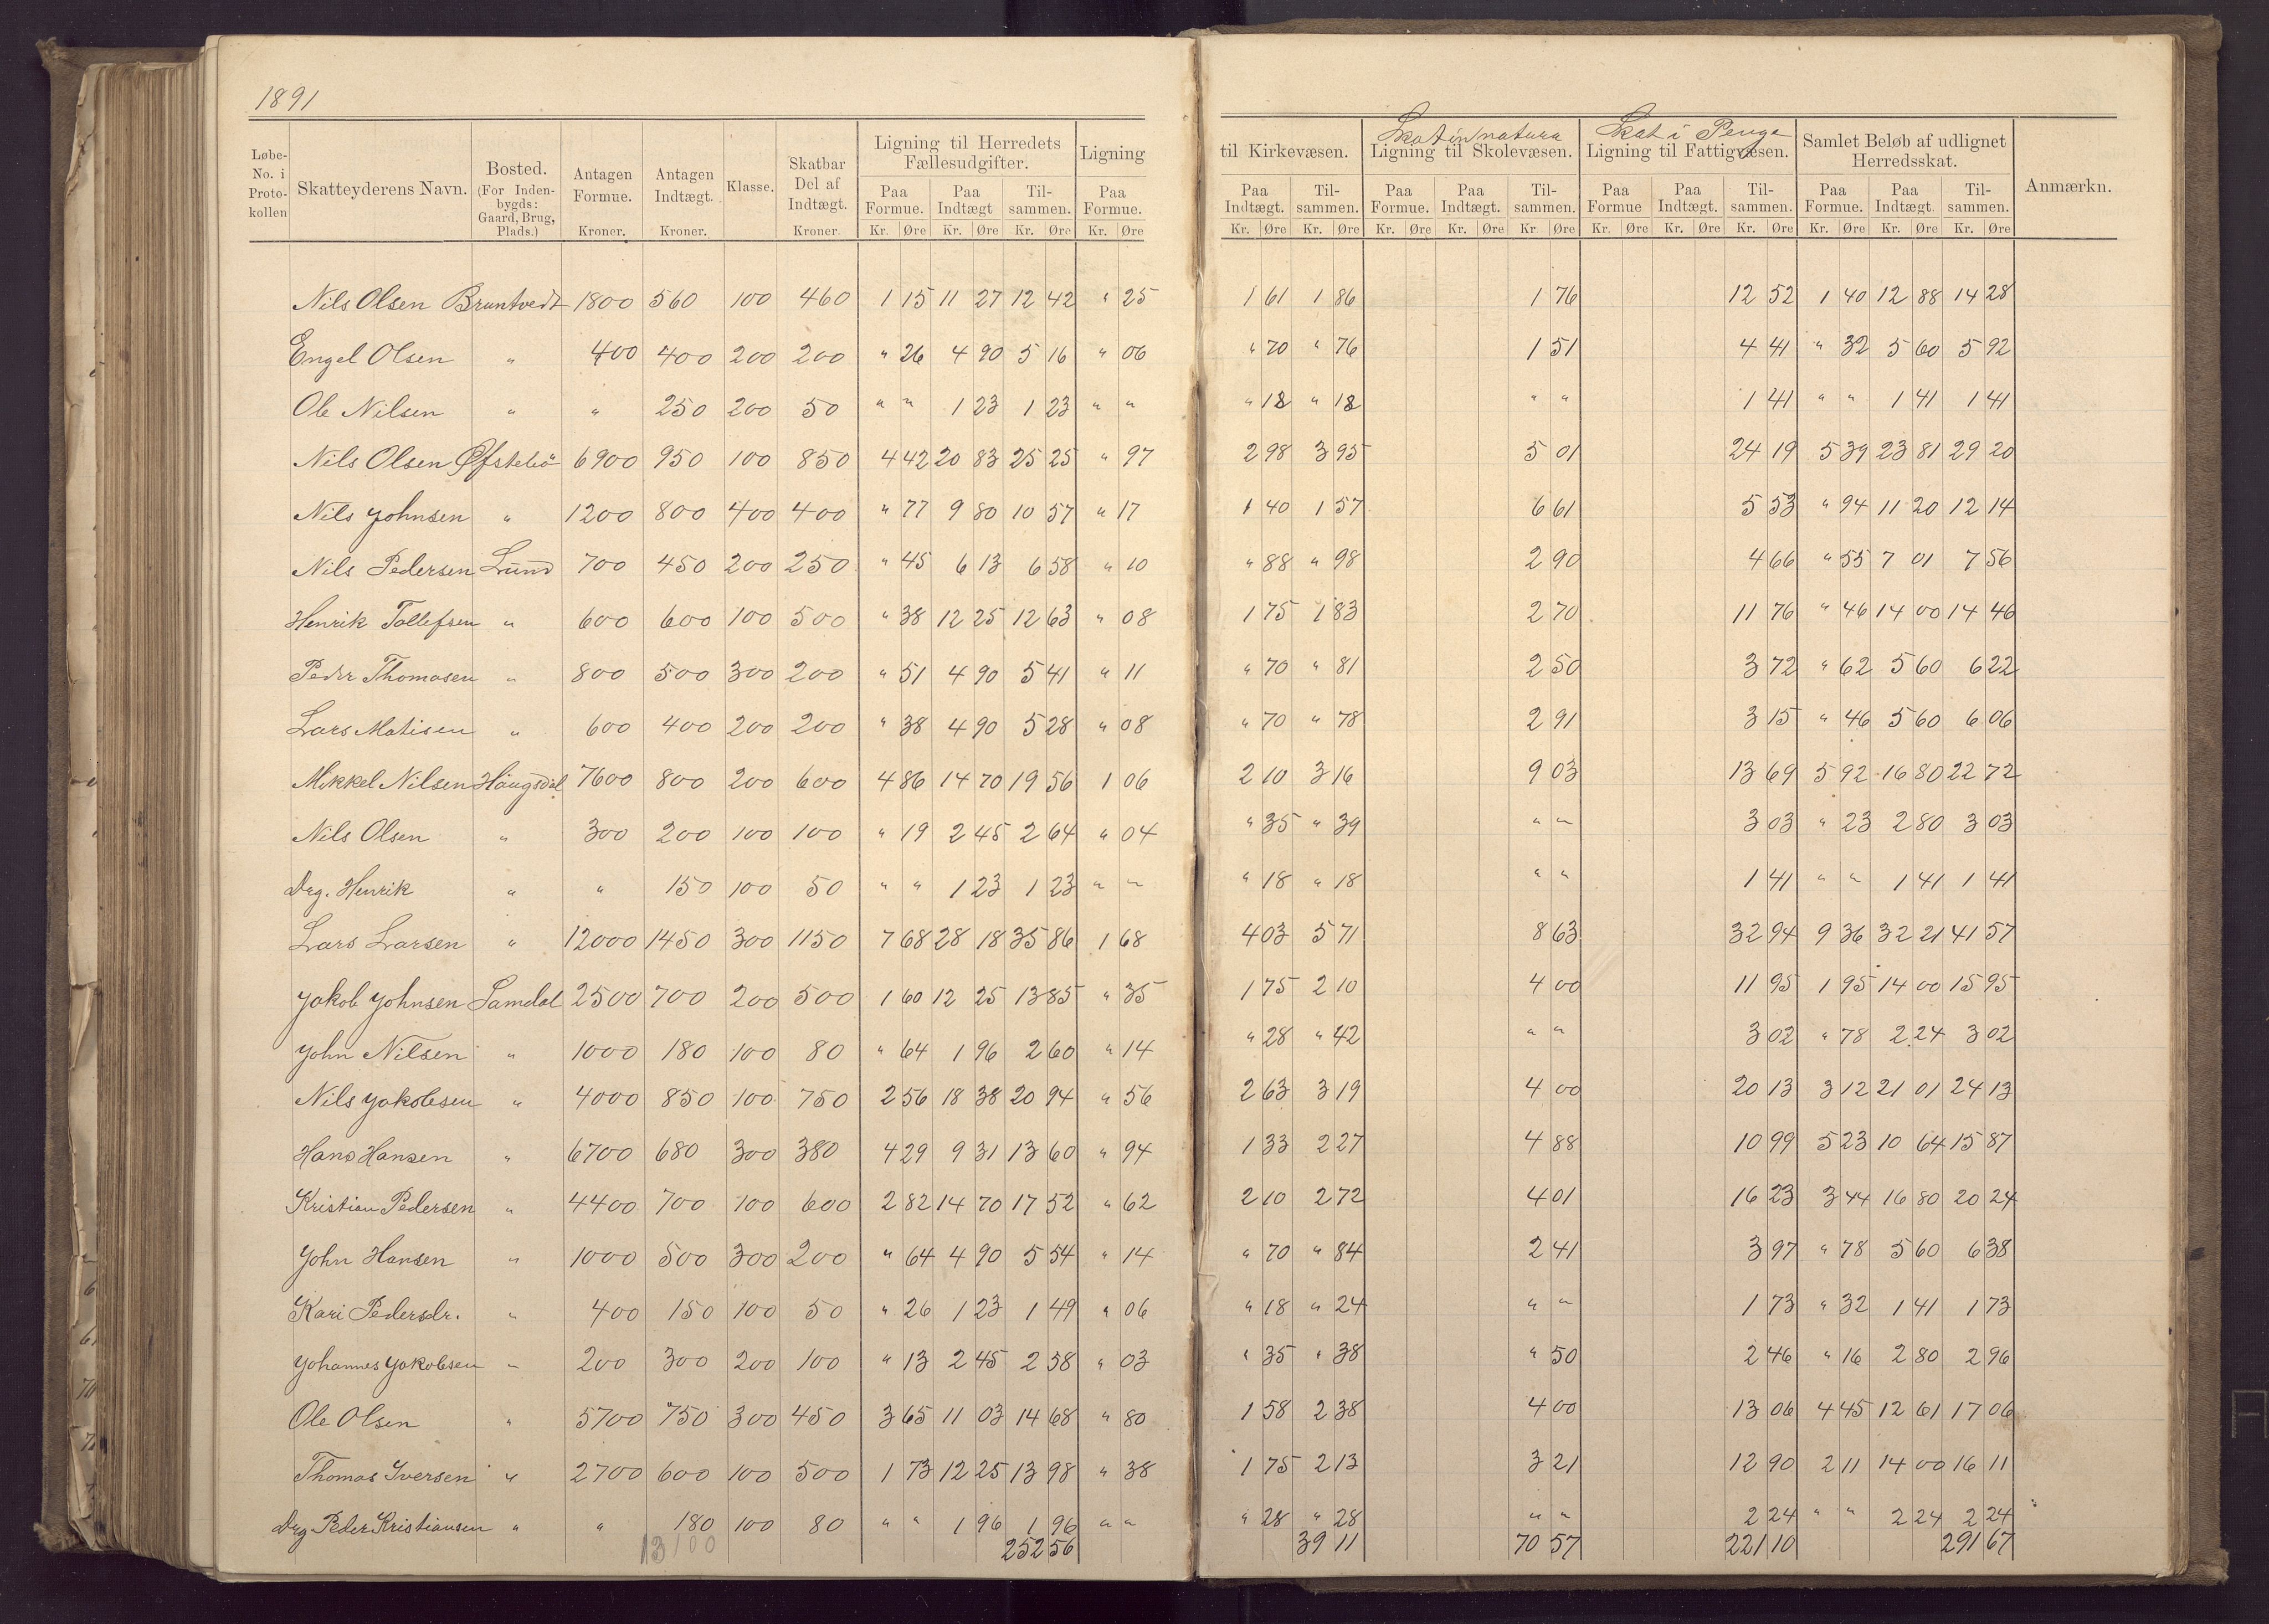 1891
Løbe-No. i Proto-kollen | Skatteyderens Navn. | Bosted. (For Inden-bygds: Gaard, Brug, Plads.) | Antagen Formue. Kroner. | Antagen Indtægt. Kroner. | Klasse. | Skatbar Del af Indtægt. Kroner. | Ligning til Herredets Fællesudgifter. Paa Formue. Kr. Øre | Paa Indtægt Kr. Øre | Til-sammen. Kr. Øre | Ligning Paa Formue. Kr. Øre | til Kirkevæsen. Paa Indtægt. Kr. Øre | Til-sammen. Kr. Øre | Skat in natura Ligning til Skolevæsen. Paa Formue. Kr. Øre | Paa Indtægt. Kr. Øre | Til-sammen. Kr Øre | Skat i Penge Ligning til Fattigvæsen. Paa Formue Kr. Øre | Paa Indtægt. Kr. Øre | Til-sammen. Kr. Øre | Samlet Beløb af udlignet Herredsskat. Paa Formue. Kr. Øre | Paa Indtægt. Kr. Øre | Til-sammen. Kr. Øre | Anmærkn.
Nils Olsen Bruntvedt 1800 560 100 460 1 15 11 27 12 42 " 25 1 61 1 86 1 76 12 52 1 40 12 88 14 28
Engel Olsen " 400 400 200 200 " 26 4 90 5 16 " 06 " 70 " 76 1 51 4 41 " 32 5 60 5 92
Ole Nilsen " " 250 200 50 " " 1 23 1 23 " " " 18 " 18 " " 1 41 " " 1 41 1 41
Nils Olsen Øfstebö 6900 950 100 850 4 42 20 83 25 25 " 97 2 98 3 95 5 01 24 19 5 39 23 81 29 20
Nils Johnsen " 1200 800 400 400 " 77 9 80 10 57 " 17 1 40 1 57 6 61 5 53 " 94 11 20 12 14
Nils Pedersen Lund 700 450 200 250 " 45 6 13 6 58 " 10 " 88 " 98 2 90 4 66 " 55 7 01 7 56
Henrik Tollefsen " 600 600 100 500 " 38 12 25 12 63 " 08 1 75 1 83 2 70 11 76 " 46 14 00 14 46
Peder Thomasen " 800 500 300 200 " 51 4 90 5 41 " 11 " 70 " 81 2 50 3 72 " 62 5 60 6 22
Lars Matisen " 600 400 200 200 " 38 4 90 5 28 " 08 " 70 " 78 2 91 3 15 " 46 5 60 6 06
Mikkel Nilsen Haugsdal 7600 800 200 600 4 86 14 70 19 56 1 06 2 10 3 16 9 03 13 69 5 92 16 80 22 72
Nils Olsen " 300 200 100 100 " 19 2 45 2 64 " 04 " 35 " 39 " " 3 03 " 23 2 80 3 03
Drg. Henrik " " 150 100 50 " " 1 23 1 23 " " " 18 " 18 " " 1 41 " " 1 41 1 41
Lars Larsen " 12000 1450 300 1150 7 68 28 18 35 86 1 68 4 03 5 71 8 63 32 94 9 36 32 21 41 57
Jakob Johnsen Samdal 2500 700 200 500 1 60 12 25 13 85 " 35 1 75 2 10 4 00 11 95 1 95 14 00 15 95
John Nilsen " 1000 180 100 80 " 64 1 96 2 60 " 14 " 28 " 42 " " 3 02 " 78 2 24 3 02
Nils Jakobsen " 4000 850 100 750 2 56 18 38 20 94 " 56 2 63 3 19 4 00 20 13 3 12 21 01 24 13
Hans Hansen " 6700 680 300 380 4 29 9 31 13 60 " 94 1 33 2 27 4 88 10 99 5 23 10 64 15 87
Kristian Pedersen " 4400 700 100 600 2 82 14 70 17 52 " 62 2 10 2 72 4 01 16 23 3 44 16 80 20 24
John Hansen " 1000 500 300 200 " 64 4 90 5 54 " 14 " 70 " 84 2 41 3 97 " 78 5 60 6 38
Kari Pedersdr. " 400 150 100 50 " 26 1 23 1 49 " 06 " 18 " 24 " " 1 73 " 32 1 41 1 73
Johannes Jakobsen " 200 300 200 100 " 13 2 45 2 58 " 03 " 35 " 38 " 50 2 46 " 16 2 80 2 96
Ole Olsen " 5700 750 300 450 3 65 11 03 14 68 " 80 1 58 2 38 4 00 13 06 4 45 12 61 17 06
Thomas Iversen " 2700 600 100 500 1 73 12 25 13 98 " 38 1 75 2 13 3 21 12 90 2 11 14 00 16 11
Drg Peder Kristiansen " " 180 100 80 " " 1 96 1 96 " " " 28 " 28 " " 2 24 " " 2 24 2 24
13100 252 56 39 11 70 57 221 10 291 67